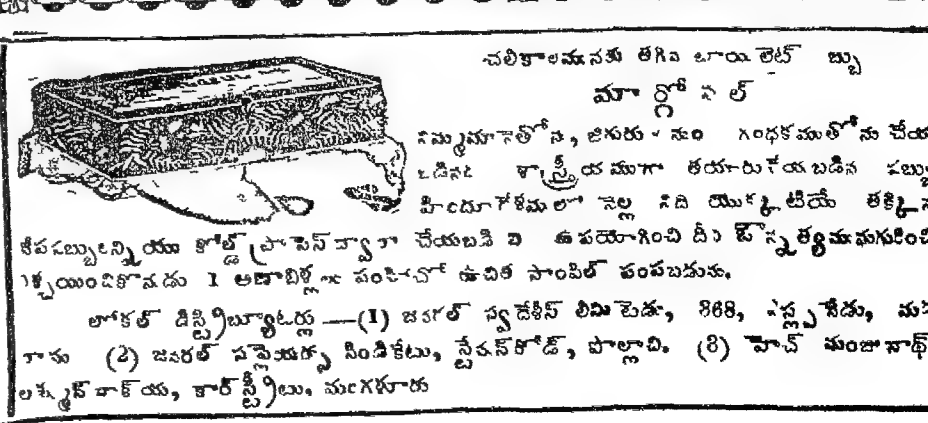 చలికాలమునకు తగిన టాయిలెట్ సబ్బు
మార్గోసల్
నిమ్మనూనెతోను, జిగురు గంధకముతోను చేయ
బడినది శాస్త్రీయముగా తయారుచేయబడిన సబ్బు
హిందూదేశములో నెల్ల నిది యొక్కటియే తక్కిన
వేపసబ్బులన్నియు కోల్డ్ ప్రాసెస్ ద్వారా చేయబడినవి ఉపయోగించి దీని ఔన్నత్యమును
నిశ్చయించికొనుడు 1 అణాబిళ్లను పంపినచో ఉచిత సాంపిల్ పంపబడును.
లోకల్ డిస్ట్రిబ్యూటర్లు —(1) జనరల్ స్వదేశీస్ లిమిటెడు, 368,
(2) జనరల్ సప్లయర్సు సిండికేటు, స్టేషన్‌రోడ్, పొల్లాచి. (3) హెచ్ మంజునాథ్
కార్‌స్ట్రీటు, మంగళూరు